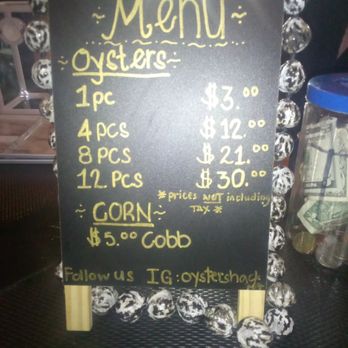 ~Menu~
~Oysters~
1 pc $3.00
4 pcs $12.00
8 pcs $21.00
12 pcs $30.00
*prices NOT including
TAX*
~CORN~
$5.00 Cobb
Follow us IG:oystershack